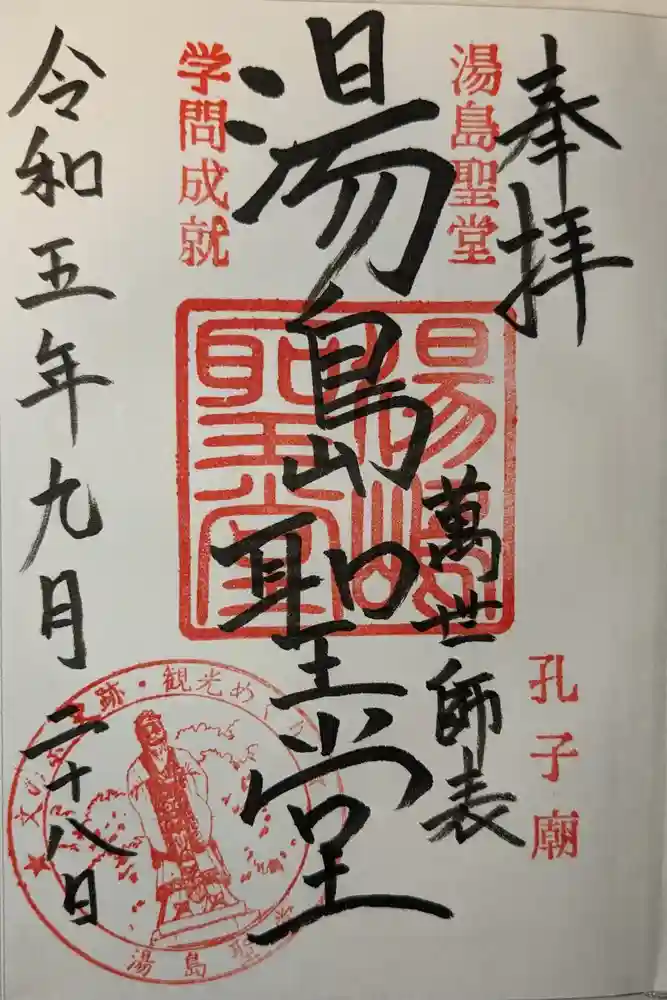 奉拝
湯島聖堂
孔子廟
萬世師表
湯島聖堂
湯島聖堂
学問成就
令和五年九月二十八日
跡・観光め
湯島聖